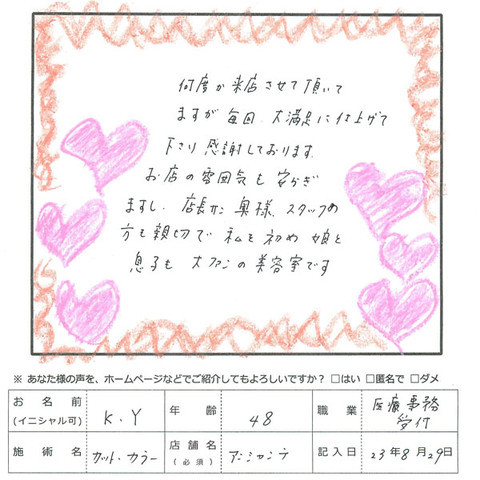 何度か来店させて頂いて
ますが毎回、大満足に仕上げて
下さり感謝しております。
お店の雰囲気も安らぎ
ますし、店長さん奥様、スタッフの
方も親切で私を初め娘と
息子も大ファンの美容室です
※ あなた様の声を、ホームページなどでご紹介してもよろしいですか？ □はい □匿名で □ダメ
お名前 (イニシャル可) K.Y 年齢 48 職業 医療事務 受付
施術名 カット・カラー 店舗名 (必須) アンシャンテ 記入日 23年8月29日